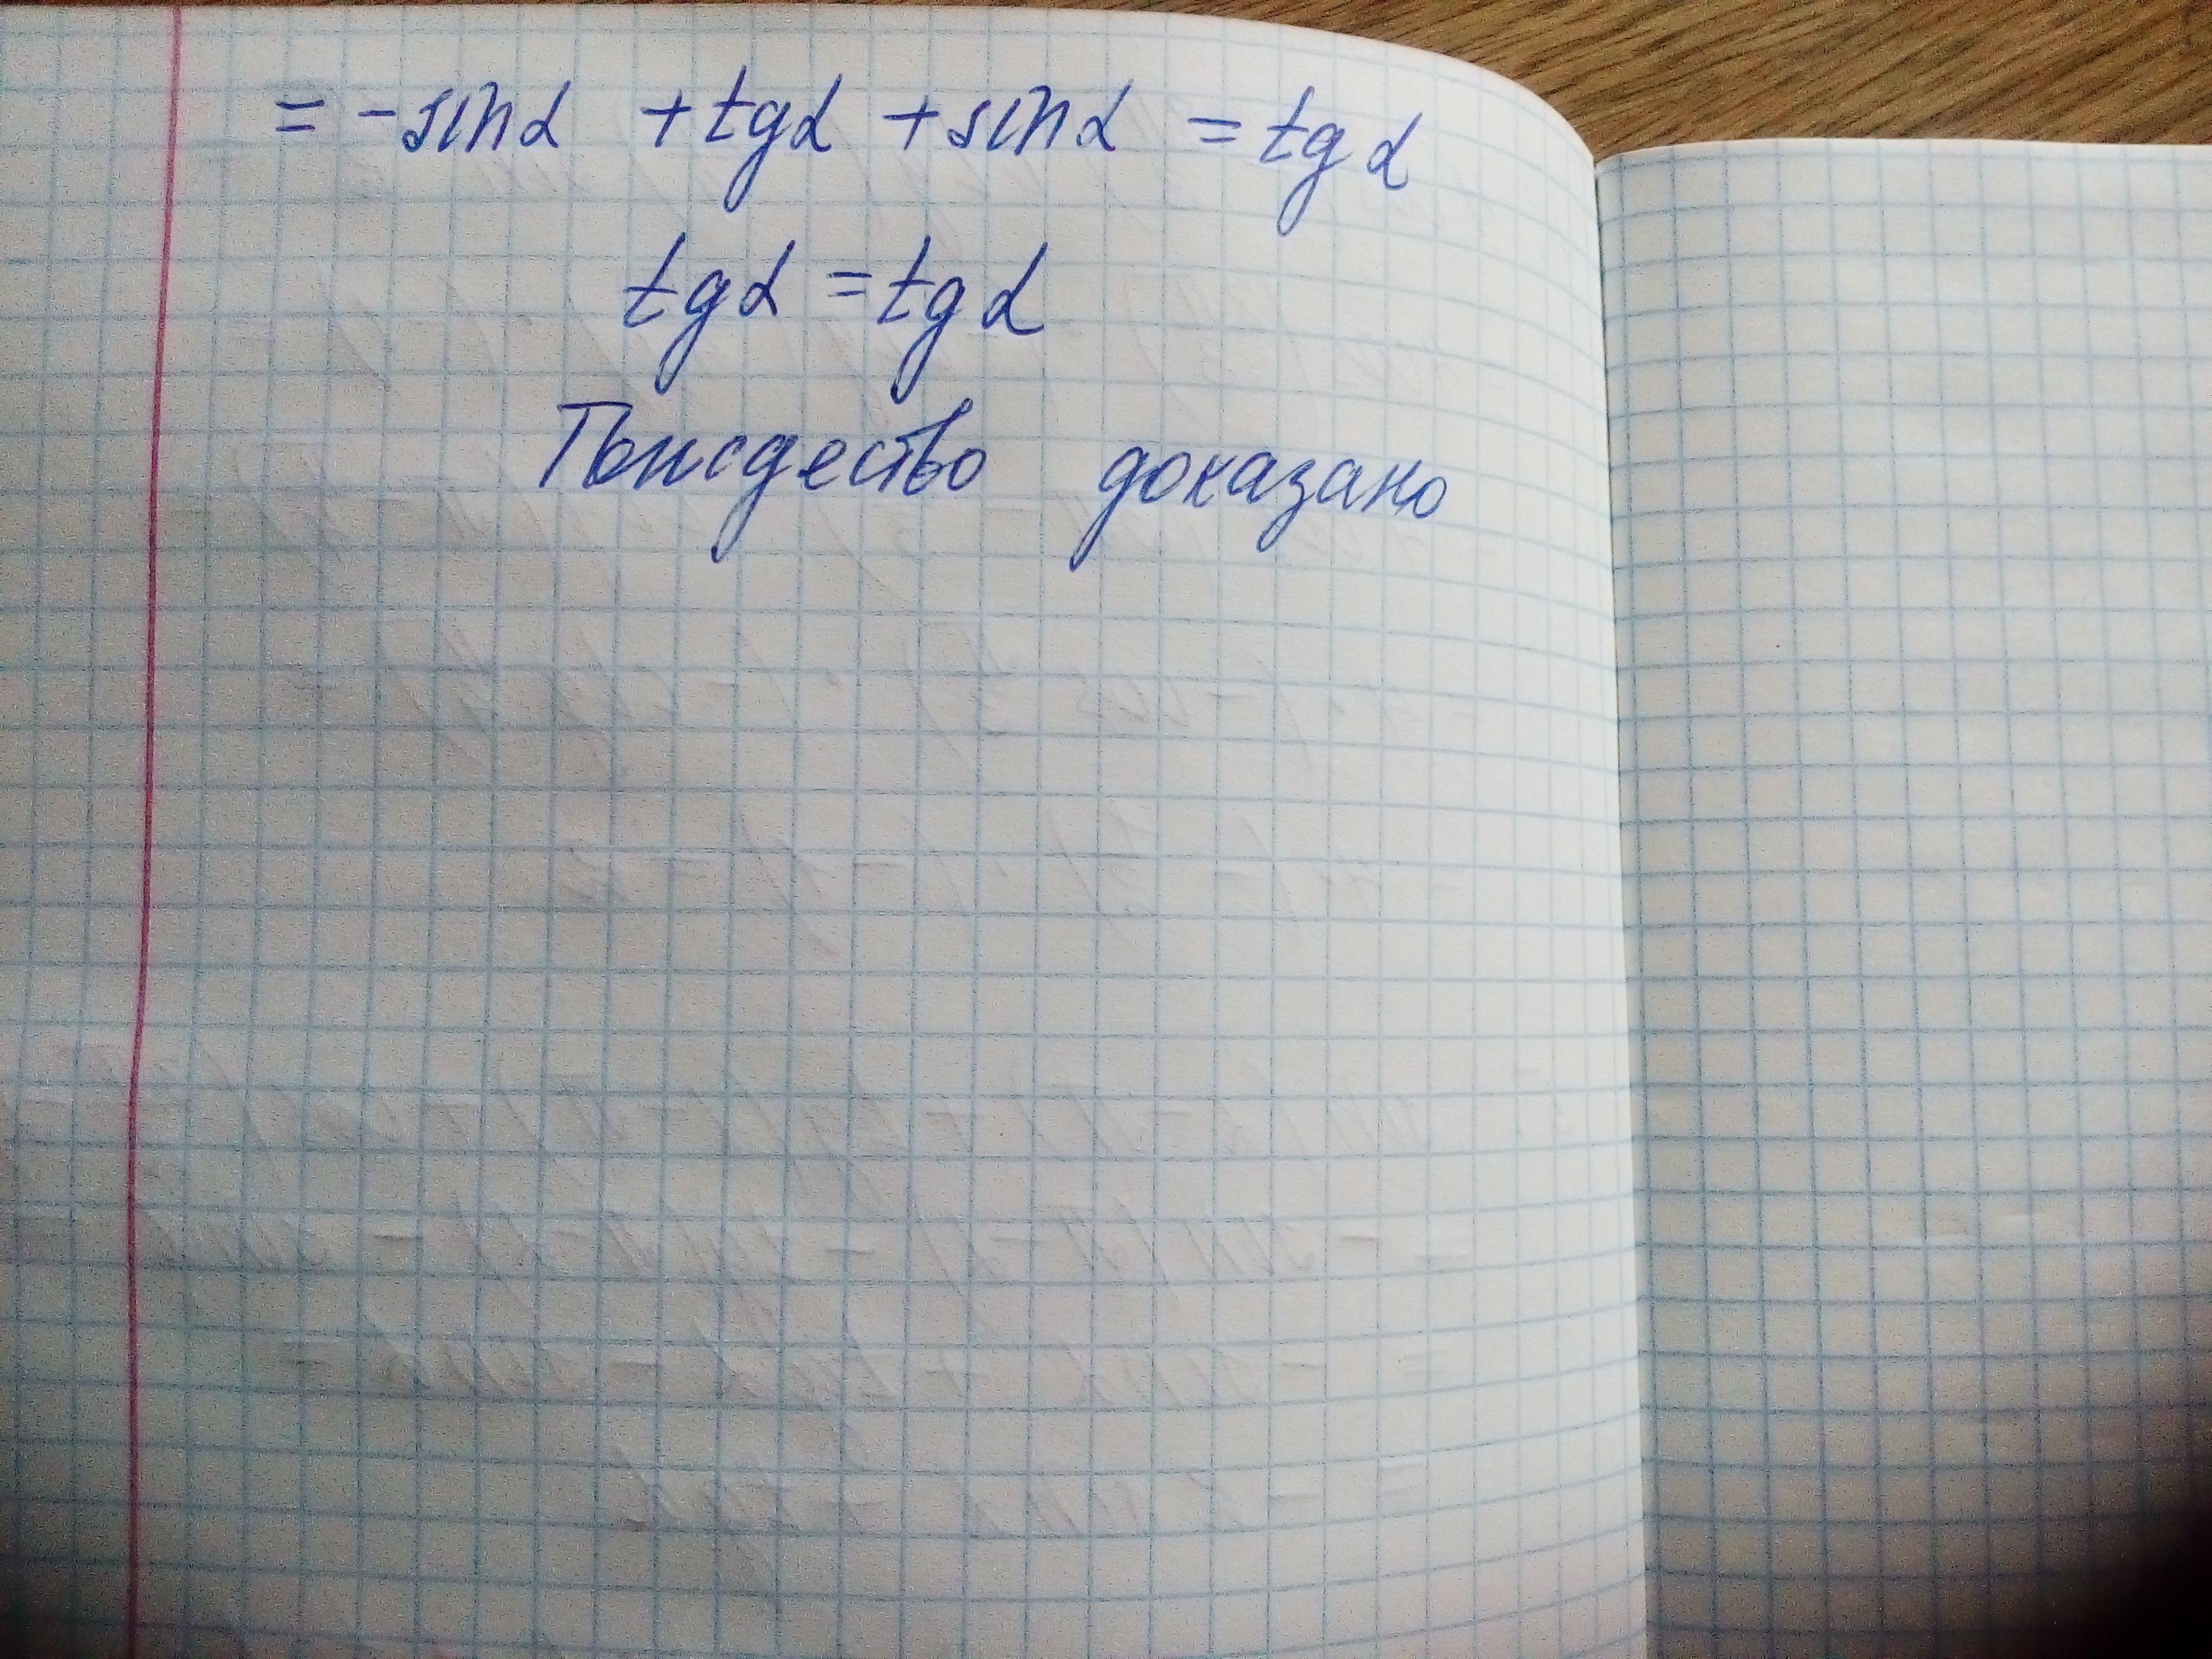 = -sinα + tgα + sinα = tgα
tgα = tgα
Тождество доказано